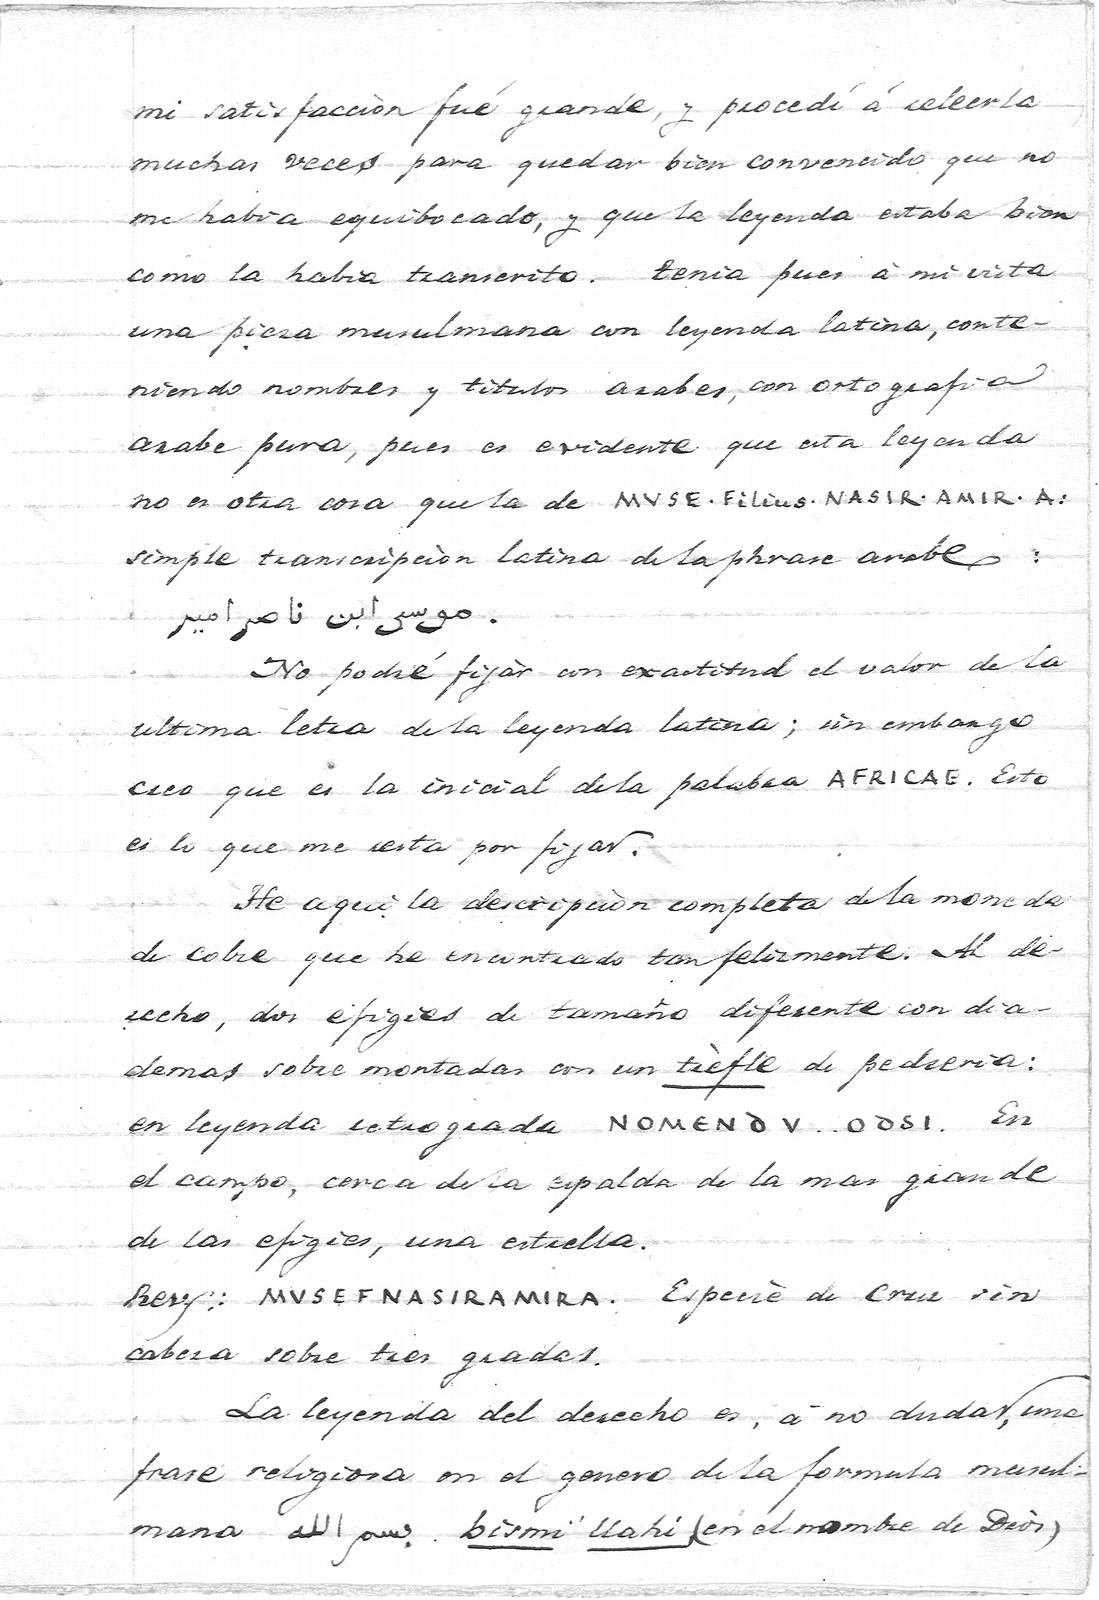 mi satisfacción fué grande, y procedí á releerla
muchas veces para quedar bien convencido que no
me habia equibocado, y que la leyenda estaba bien
como la habia transcrito. tenia pues á mi vista
una pieza musulmana con leyenda latina, conte-
niendo nombres y titulos arabes, con ortografia
arabe pura, pues es evidente que esta leyenda
no es otra cosa que la de MVSE·Filius·NASIR·AMIR·A:
simple transcripción latina de la phrase arabe :
موسى ابن ناصر امير.
No podré fijar con exactitud el valor de la
ultima letra de la leyenda latina; sin embargo
creo que es la inicial de la palabra AFRICAE. Esto
es lo que me resta por fijar.
He aqui la descripción completa de la moneda
de cobre que he encontrado tan felizmente. Al de-
recho, dos efigies de tamaño diferente con dia-
demas sobre montadas con un trèfle de pedreria:
en leyenda retrograda NOMENDV..ODSI. En
el campo, cerca de la espalda de la mas grande
de las efigies, una estrella.
Rev: MVSEFNASIRAMIRA. Especie de Cruz sin
cabeza sobre tres gradas.
La leyenda del derecho es, á no dudar, una
frase religiosa en el genero de la formula musul-
mana بسم الله. bismi llahi (en el nombre de Dios)